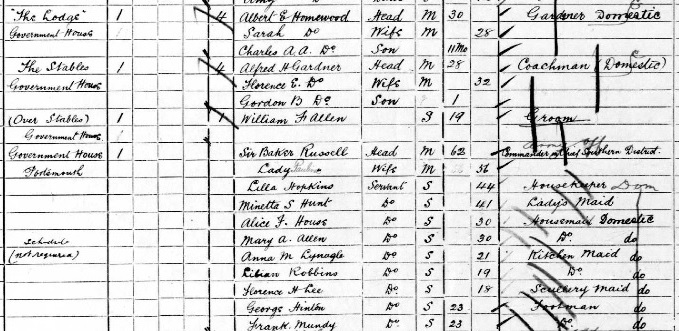 "The Lodge" 1 4 Albert E Homewood Head M 30 Gardner Domestic
Government House Sarah Do Wife M 28
Charles A. A. Do Son 11 Mo
The Stables 1 4 Alfred H Gardner Head M 28 Coachman (Domestic)
Government House Florence E. Do Wife M 32
Gordon B Do Son 1
(Over Stables) 1 1 William F Allen S 19 Groom
Government House
Government House 1 Sir Baker Russell Head M 62 Commander in Chief Southern District.
Portsmouth Lady Wife M 56
Lilla Hopkins Servant S 44 Housekeeper Dom
Minetta S Hunt Do S 41 Lady's Maid
Alice F. House Do S 30 Housemaid Domestic
Schedule Mary A. Allen Do S 30 Do. do
(not required) Anna M Do S 21 Kitchen Maid do
Lilian Robbins Do S 19 Do do
Florence H Lee Do S 18 Scullery Maid do
George Hinton Do S 23 Footman do
Frank Mundy Do S 23 Do do